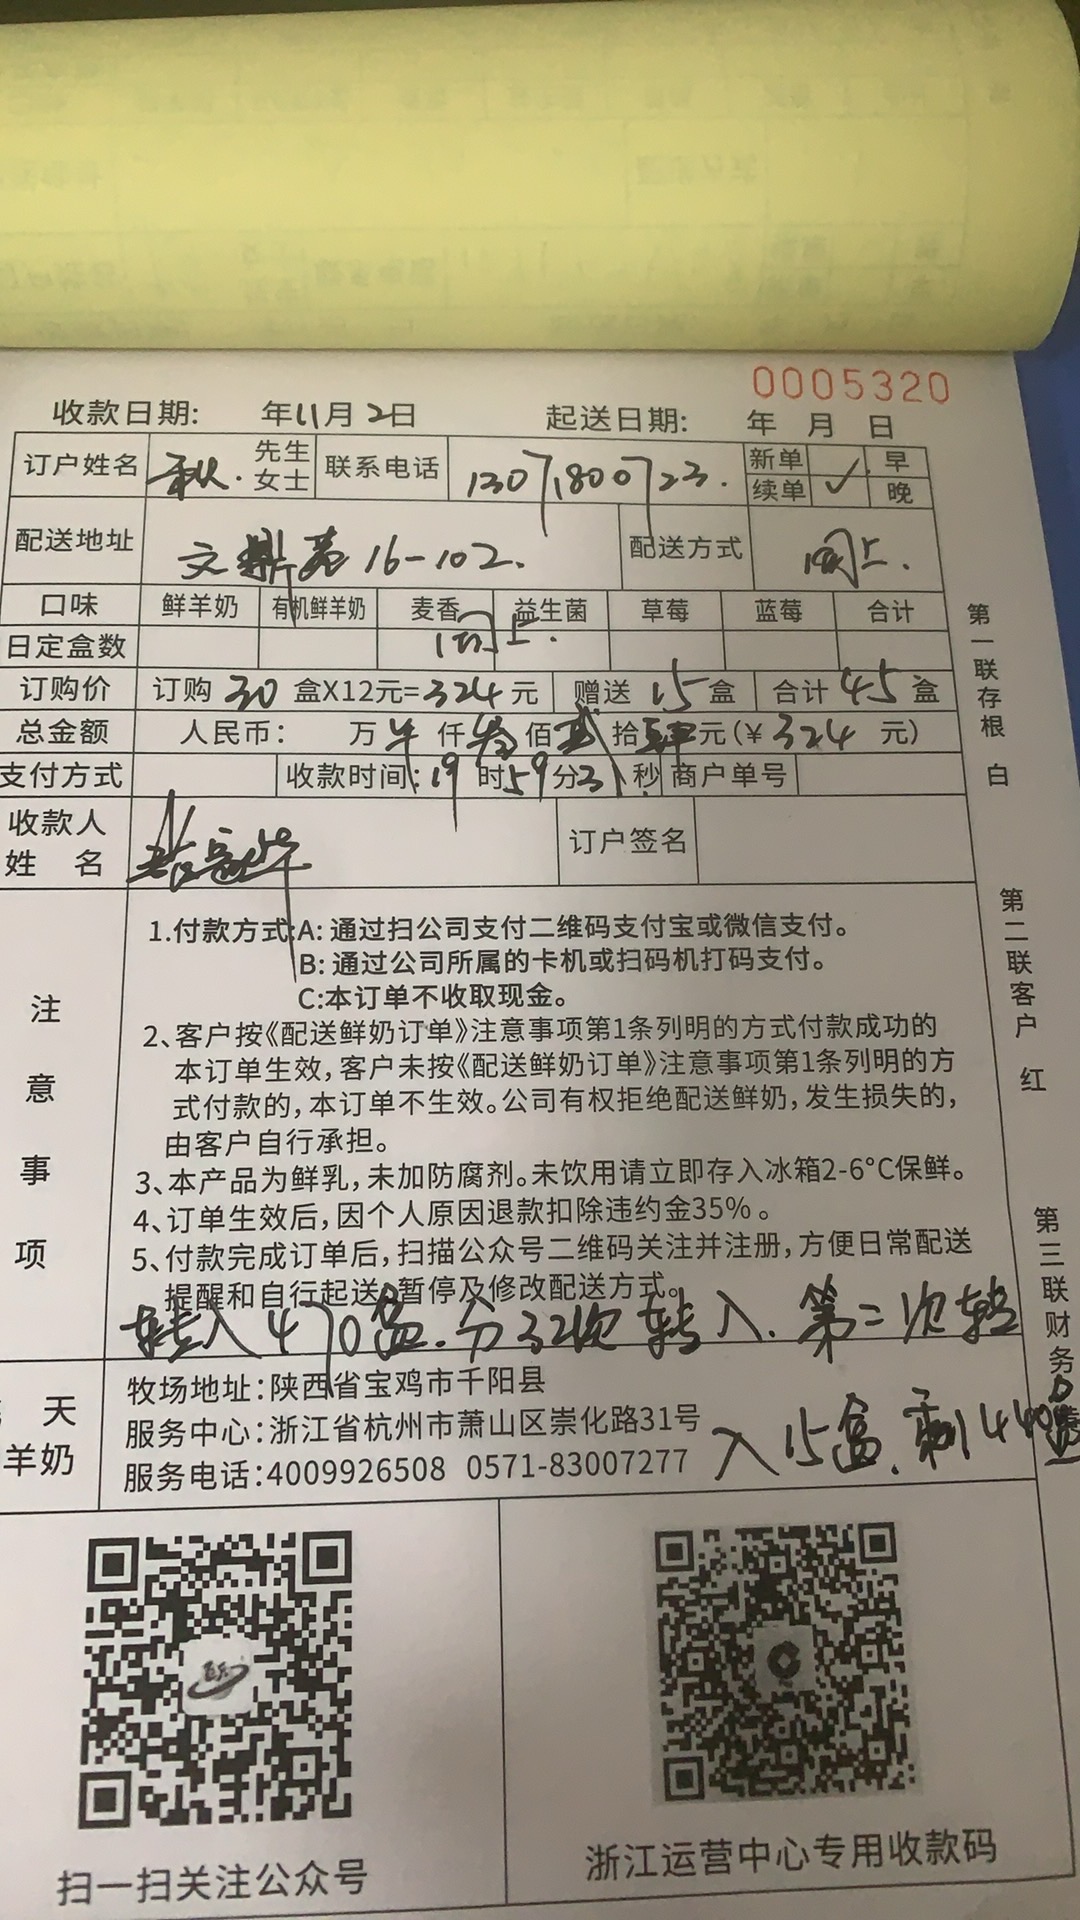 0005320
收款日期: 年11月2日 起送日期: 年 月 日
订户姓名 秋. 先生 女士 联系电话 13071800723. 新单 续单 ✓ 早 晚
配送地址 文鼎苑16-102. 配送方式 同上.
口味 鲜羊奶 有机鲜羊奶 麦香 益生菌 草莓 蓝莓 合计
日定盒数 同上.
订购价 订购 30 盒X12元=324元 赠送 15盒 合计 45盒
总金额 人民币: 万 仟叁佰贰拾肆元(¥324 元)
支付方式 收款时间:19时59分31秒 商户单号
收款人
姓 名 订户签名
注意事项
1.付款方式:A:通过扫公司支付二维码支付宝或微信支付。
B:通过公司所属的卡机或扫码机打码支付。
C:本订单不收取现金。
2、客户按《配送鲜奶订单》注意事项第1条列明的方式付款成功的
本订单生效,客户未按《配送鲜奶订单》注意事项第1条列明的方
式付款的,本订单不生效。公司有权拒绝配送鲜奶,发生损失的,
由客户自行承担。
3、本产品为鲜乳,未加防腐剂。未饮用请立即存入冰箱2-6°C保鲜。
4、订单生效后,因个人原因退款扣除违约金35%。
5、付款完成订单后,扫描公众号二维码关注并注册,方便日常配送
提醒和自行起送、暂停及修改配送方式。
转入470盒.分32次转入.第二次转
入15盒.剩440盒
天
羊奶
牧场地址:陕西省宝鸡市千阳县
服务中心:浙江省杭州市萧山区崇化路31号
服务电话:4009926508 0571-83007277
第一联存根 白
第二联客户 红
第三联财务
扫一扫关注公众号
浙江运营中心专用收款码